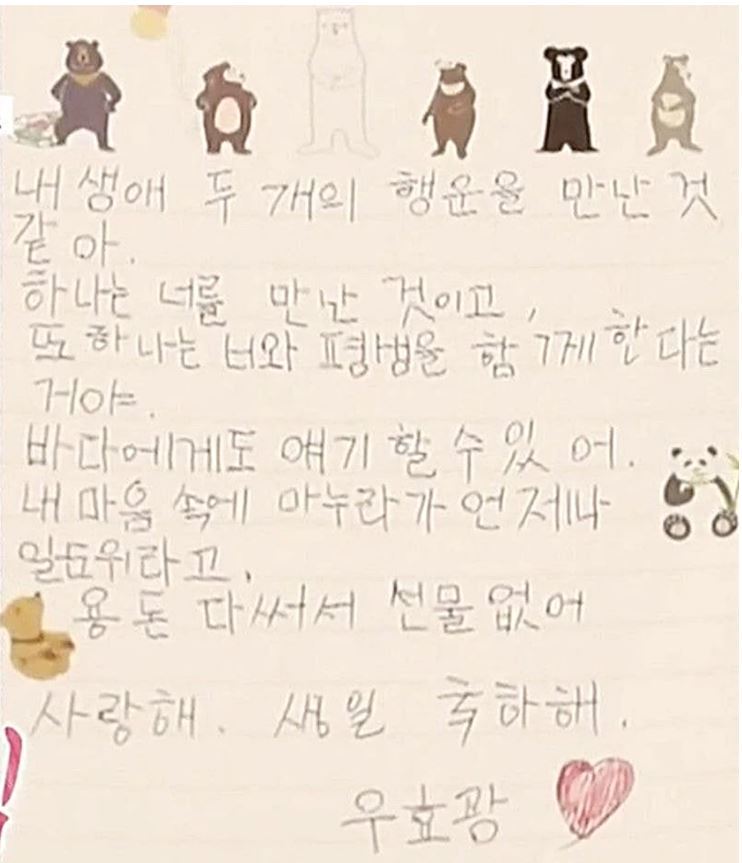 내 생애 두 개의 행운을 만난 것
같 아.
하나는 너를 만난 것이고,
또 하나는 너와 평생을 함께 한다는
거야.
바다에게도 얘기 할 수 있 어.
내 마음 속에 마누라가 언제나
일도위라고.
용돈 다써서 선물없어
사랑해. 생일 축하해.
우효광